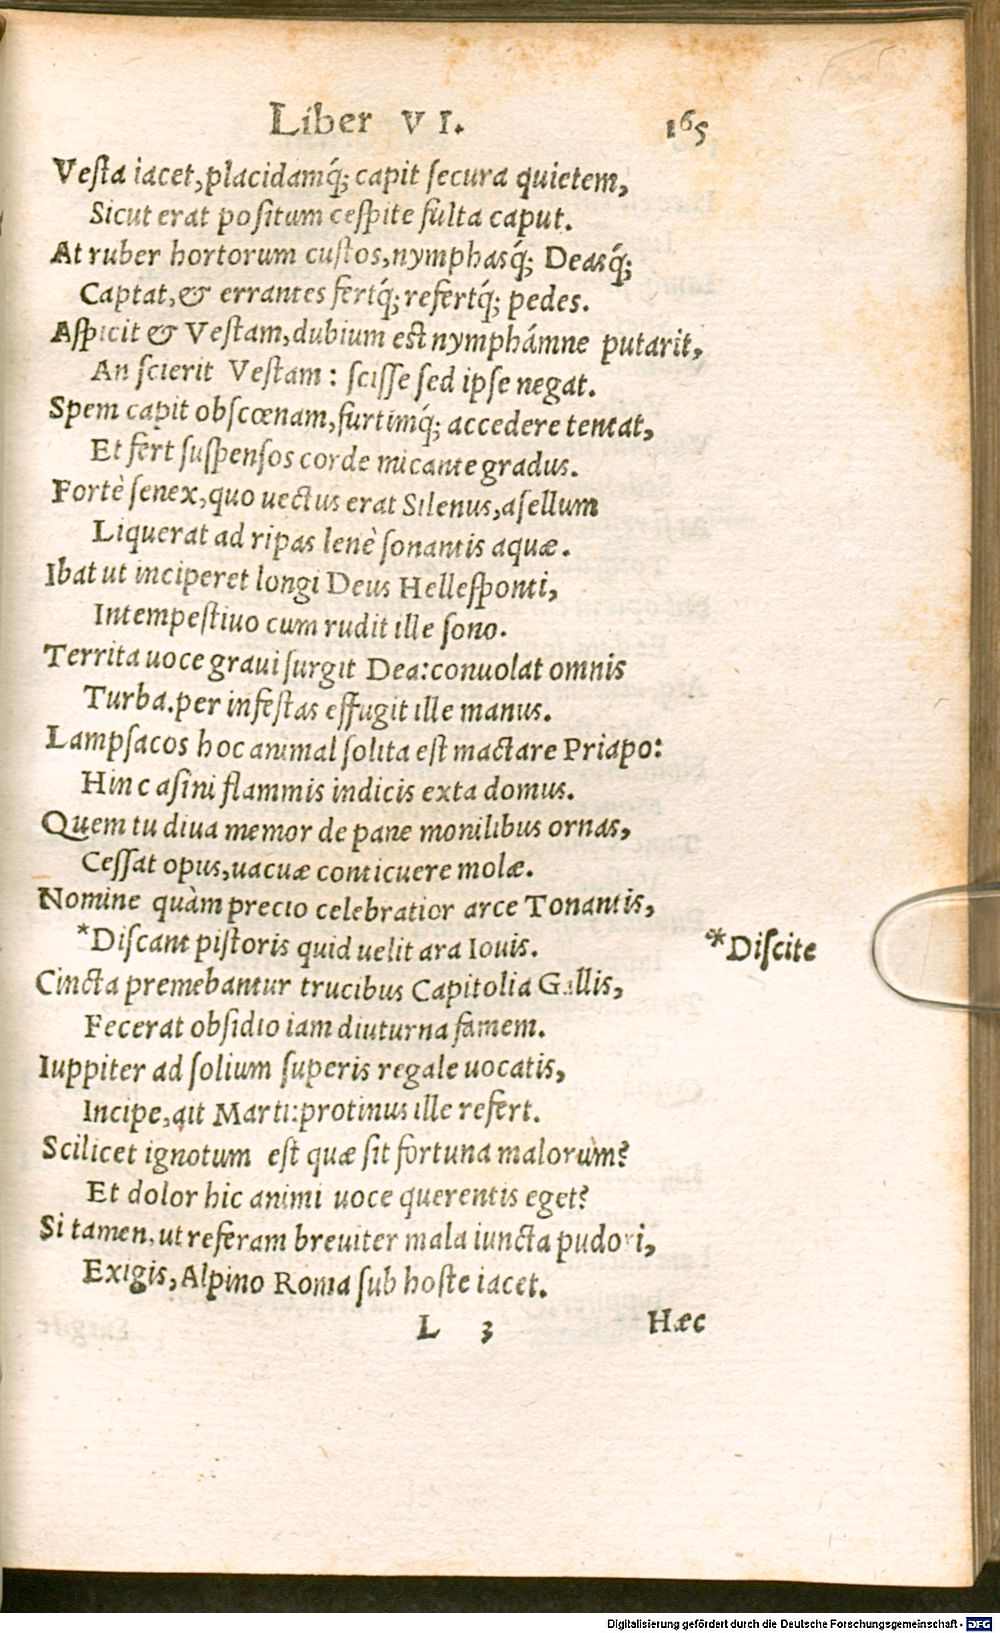 Liber VI. 165
Vesta iacet, placidamq́; capit secura quietem,
Sicut erat positum cespite fulta caput.
At ruber hortorum custos, nymphasq́; Deasq́;
Captat, & errantes fertq́; refertq́; pedes.
Aspicit & Vestam, dubium est nymphámne putarit,
An scierit Vestam: scisse sed ipse negat.
Spem capit obscœnam, furtimq́; accedere tentat,
Et fert suspensos corde micante gradus.
Fortè senex, quo uectus erat Silenus, asellum
Liquerat ad ripas lenè sonantis aquæ.
Ibat ut inciperet longi Deus Hellesponti,
Intempestiuo cum rudit ille sono.
Territa uoce graui surgit Dea: conuolat omnis
Turba. per infestas effugit ille manus.
Lampsacos hoc animal solita est mactare Priapo:
Hinc asini flammis indicis exta domus.
Quem tu diua memor de pane monilibus ornas,
Cessat opus, uacuæ conticuere molæ.
Nomine quàm precio celebratior arce Tonantis,
*Discant pistoris quid uelit ara Iouis. *Discite
Cincta premebantur trucibus Capitolia Gallis,
Fecerat obsidio iam diuturna famem.
Iuppiter ad solium superis regale uocatis,
Incipe, ait Marti: protinus ille refert.
Scilicet ignotum est quæ sit fortuna malorùm?
Et dolor hic animi uoce querentis eget?
Si tamen, ut referam breuiter mala iuncta pudori,
Exigis, Alpino Roma sub hoste iacet.
L 3 Hæc
Digitalisierung gefördert durch die Deutsche Forschungsgemeinschaft - DFG